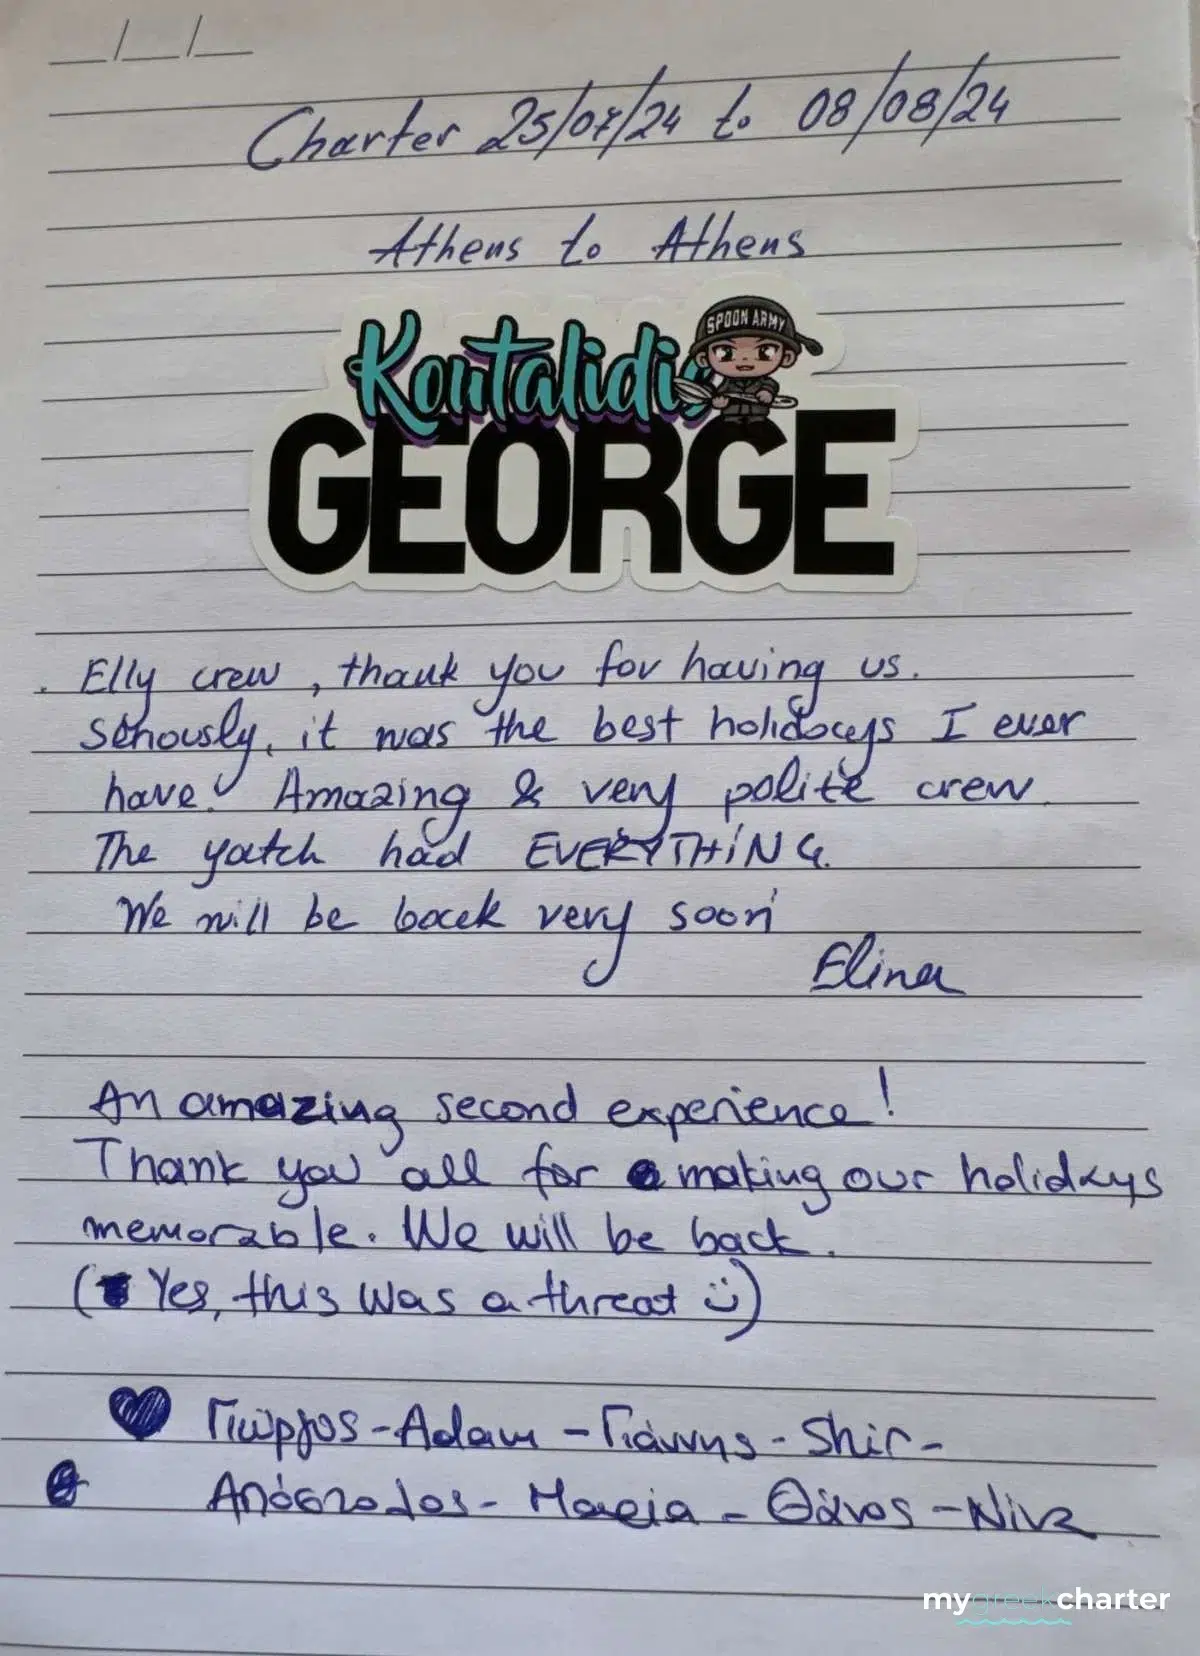 __/__/__
Charter 25/07/24 to 08/08/24
Athens to Athens
SPOON ARMY
Koutalidis
GEORGE
Elly crew, thank you for having us.
Seriously, it was the best holidays I ever
have! Amazing & very polite crew.
The yatch had EVERYTHING.
We will be back very soon
Elina
An amazing second experience!
Thank you all for making our holidays
memorable. We will be back.
(Yes, this was a threat ü)
♥ Γιώργος - Adam - Γιάννης - Shir -
Απόστολος - Μαρία - Θάνος - Νίνα
mygreekcharter